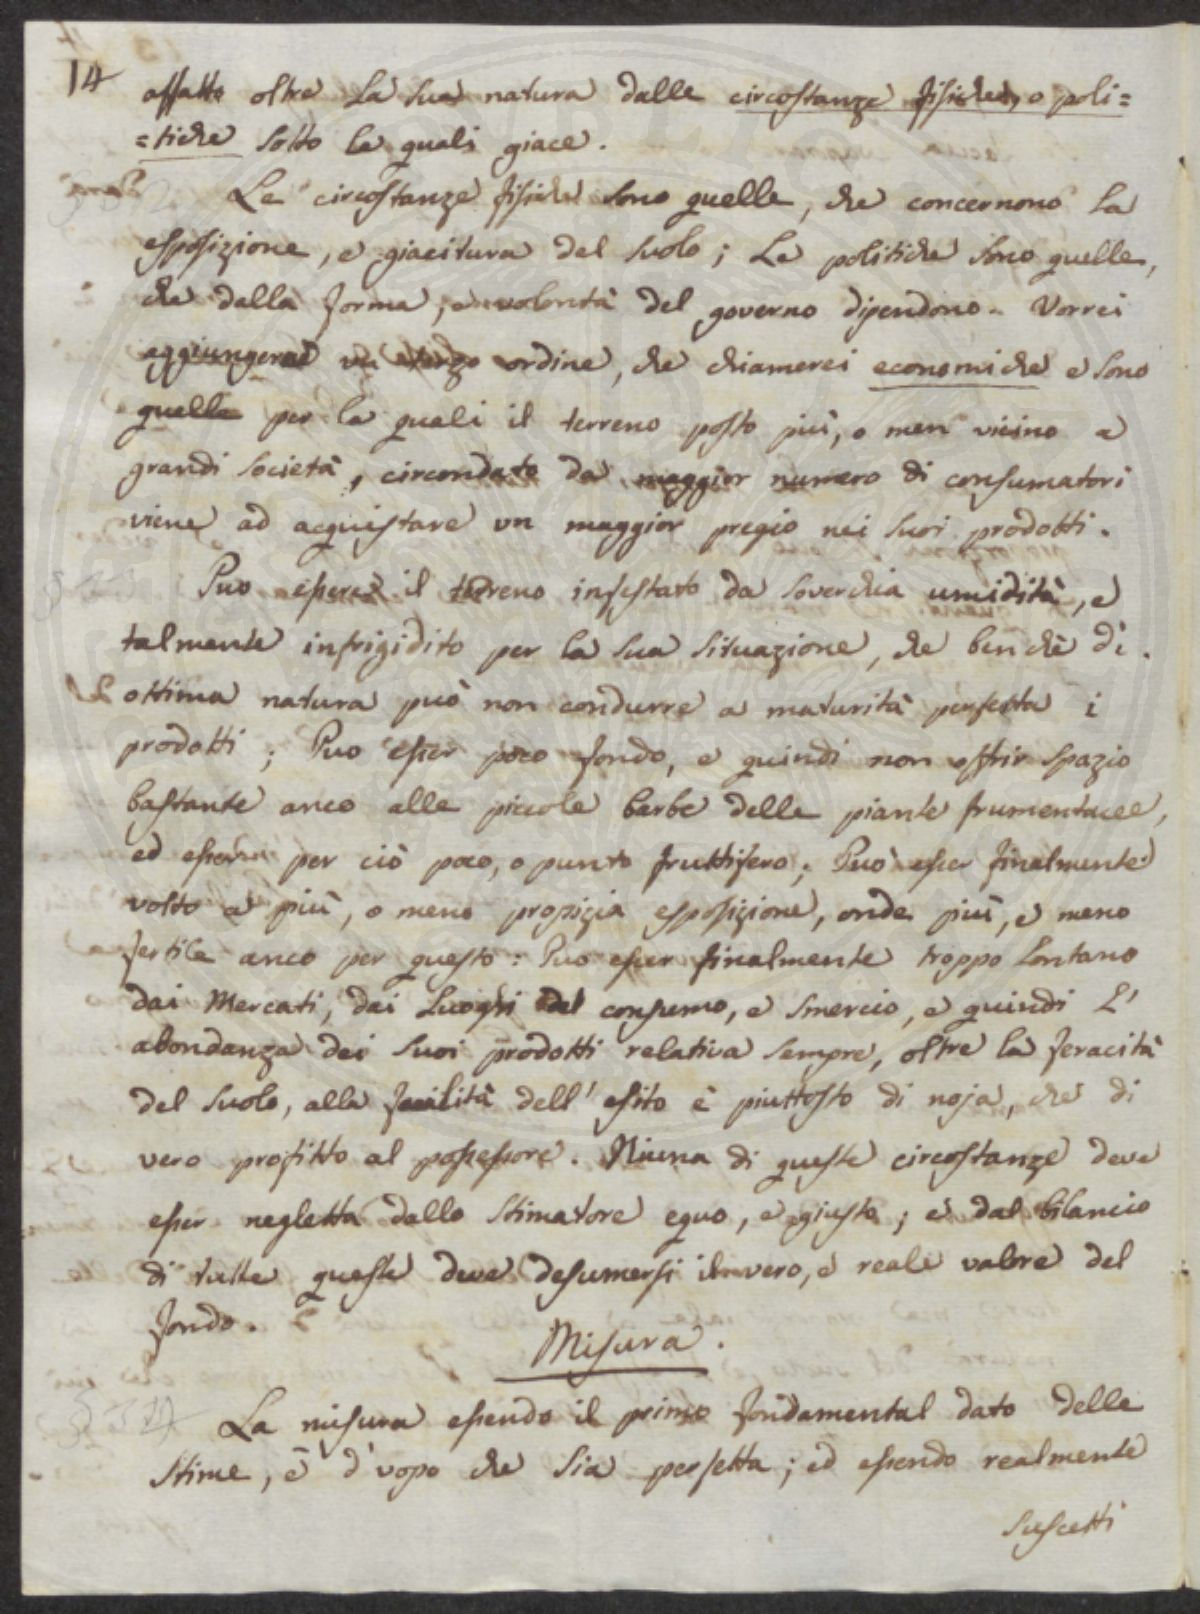 14
affatto oltre la sua natura dalle circostanze fisiche, o poli=
=tiche sotto le quali giace.
Le circostanze fisiche sono quelle, che concernono la
esposizione, e giacitura del suolo; Le politiche sono quelle,
che dalla forma, e volontà del governo dipendono. Vorrei
aggiungerne un terzo ordine, che chiamerei economiche e sono
quelle per le quali il terreno posto più, o men vicino a
grandi società, circondato da maggior numero di consumatori
viene ad acquistare un maggior pregio nei suoi prodotti.
Puo essere il terreno infestato da soverchia umidità, e
talmente infrigidito per la sua situazione, che benchè di
ottima natura può non condurre a maturità perfetta i
prodotti; Puo esser poco fondo, e quindi non offrir spazio
bastante anco alle piccole barbe delle piante frumentacee,
ed essere per ciò poco, o punto fruttifero; Può esser finalmente
volto a più, o meno propizia esposizione, onde più, e meno
fertile anco per questo: Puo esser finalmente troppo lontano
dai Mercati, dai Luoghi del consumo, e smercio, e quindi l'
abondanza dei suoi prodotti relativa sempre, oltre la feracità
del suolo, alla facilità dell' esito è piuttosto di noja, che di
vero profitto al possessore. Niuna di queste circostanze deve
esser negletta dallo stimatore equo, e giusto; e dal bilancio
di tutte queste deve desumersi il vero, e reale valore del
fondo.
Misura.
§ 314
La misura essendo il primo fondamental dato delle
stime, è d'uopo che sia perfetta; ed essendo realmente
suscetti